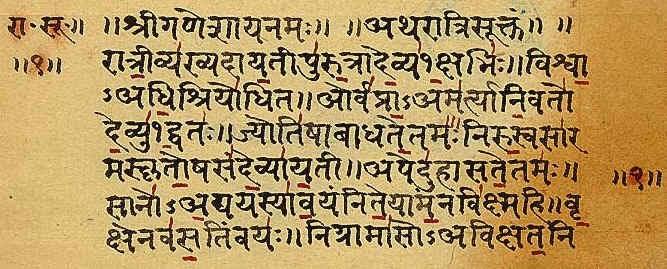 रा॰ सू॰ ॥ ॥श्रीगणेशायनमः॥ ॥अथरात्रिसूक्तं॥ ॥
॥१॥ रात्रीव्यख्यदायतीपुरुत्रादेव्य१क्षभिः॥विश्वा
ऽअधिश्रियोधित॥ओर्वप्राऽअमर्त्यानिवतो
देव्यु१द्वतः॥ज्योतिषाबाधतेतमः॥निरुस्वसार
मस्कृतोषसंदेव्यायती॥अपेदुहासतेतमः॥ ॥१॥
सानोऽअद्ययस्यावयंनितेयामन्नविक्ष्महि॥वृ
क्षेनवसतिंवयः॥निग्रामासोऽअविक्षतनि